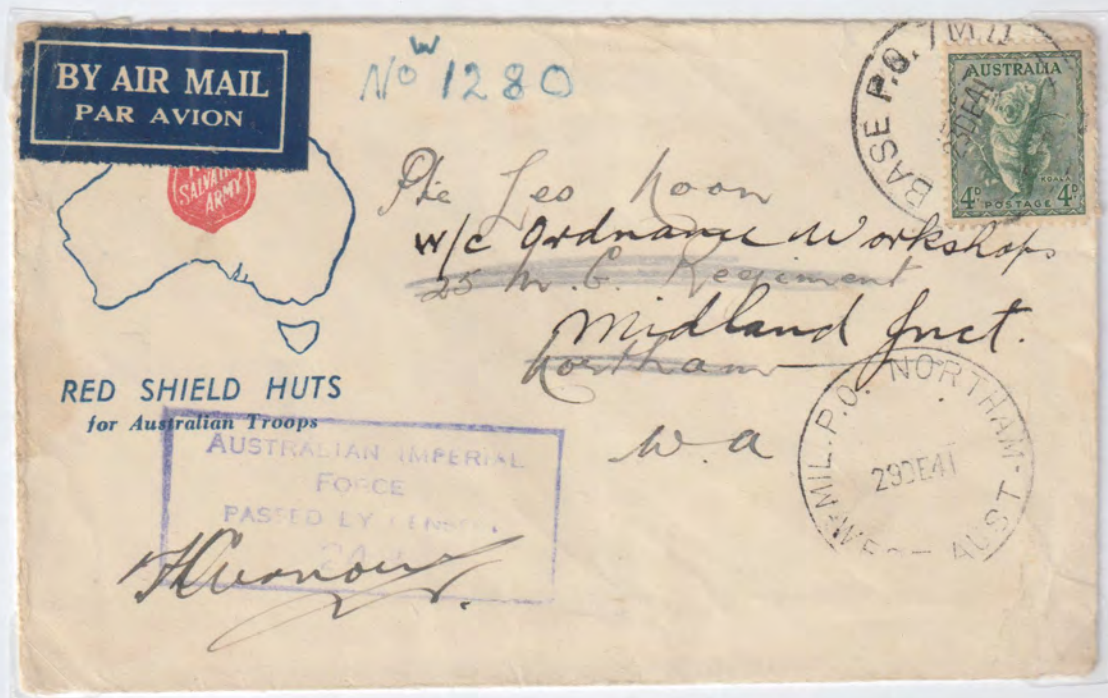 BY AIR MAIL
PAR AVION
No W 1280
BASE P.O. 7 M.
23DE41
AUSTRALIA
KOALA
4D POSTAGE 4D
SALVATION
ARMY
Pte Leo Noon
W/C Ordnance Workshops
25 M. G. Regiment
Midland Junct.
Northam
W. A
RED SHIELD HUTS
for Australian Troops
AUSTRALIAN IMPERIAL
FORCE
PASSED BY CENSOR
MIL. P.O. NORTHAM-
29DE41
WEST AUST.